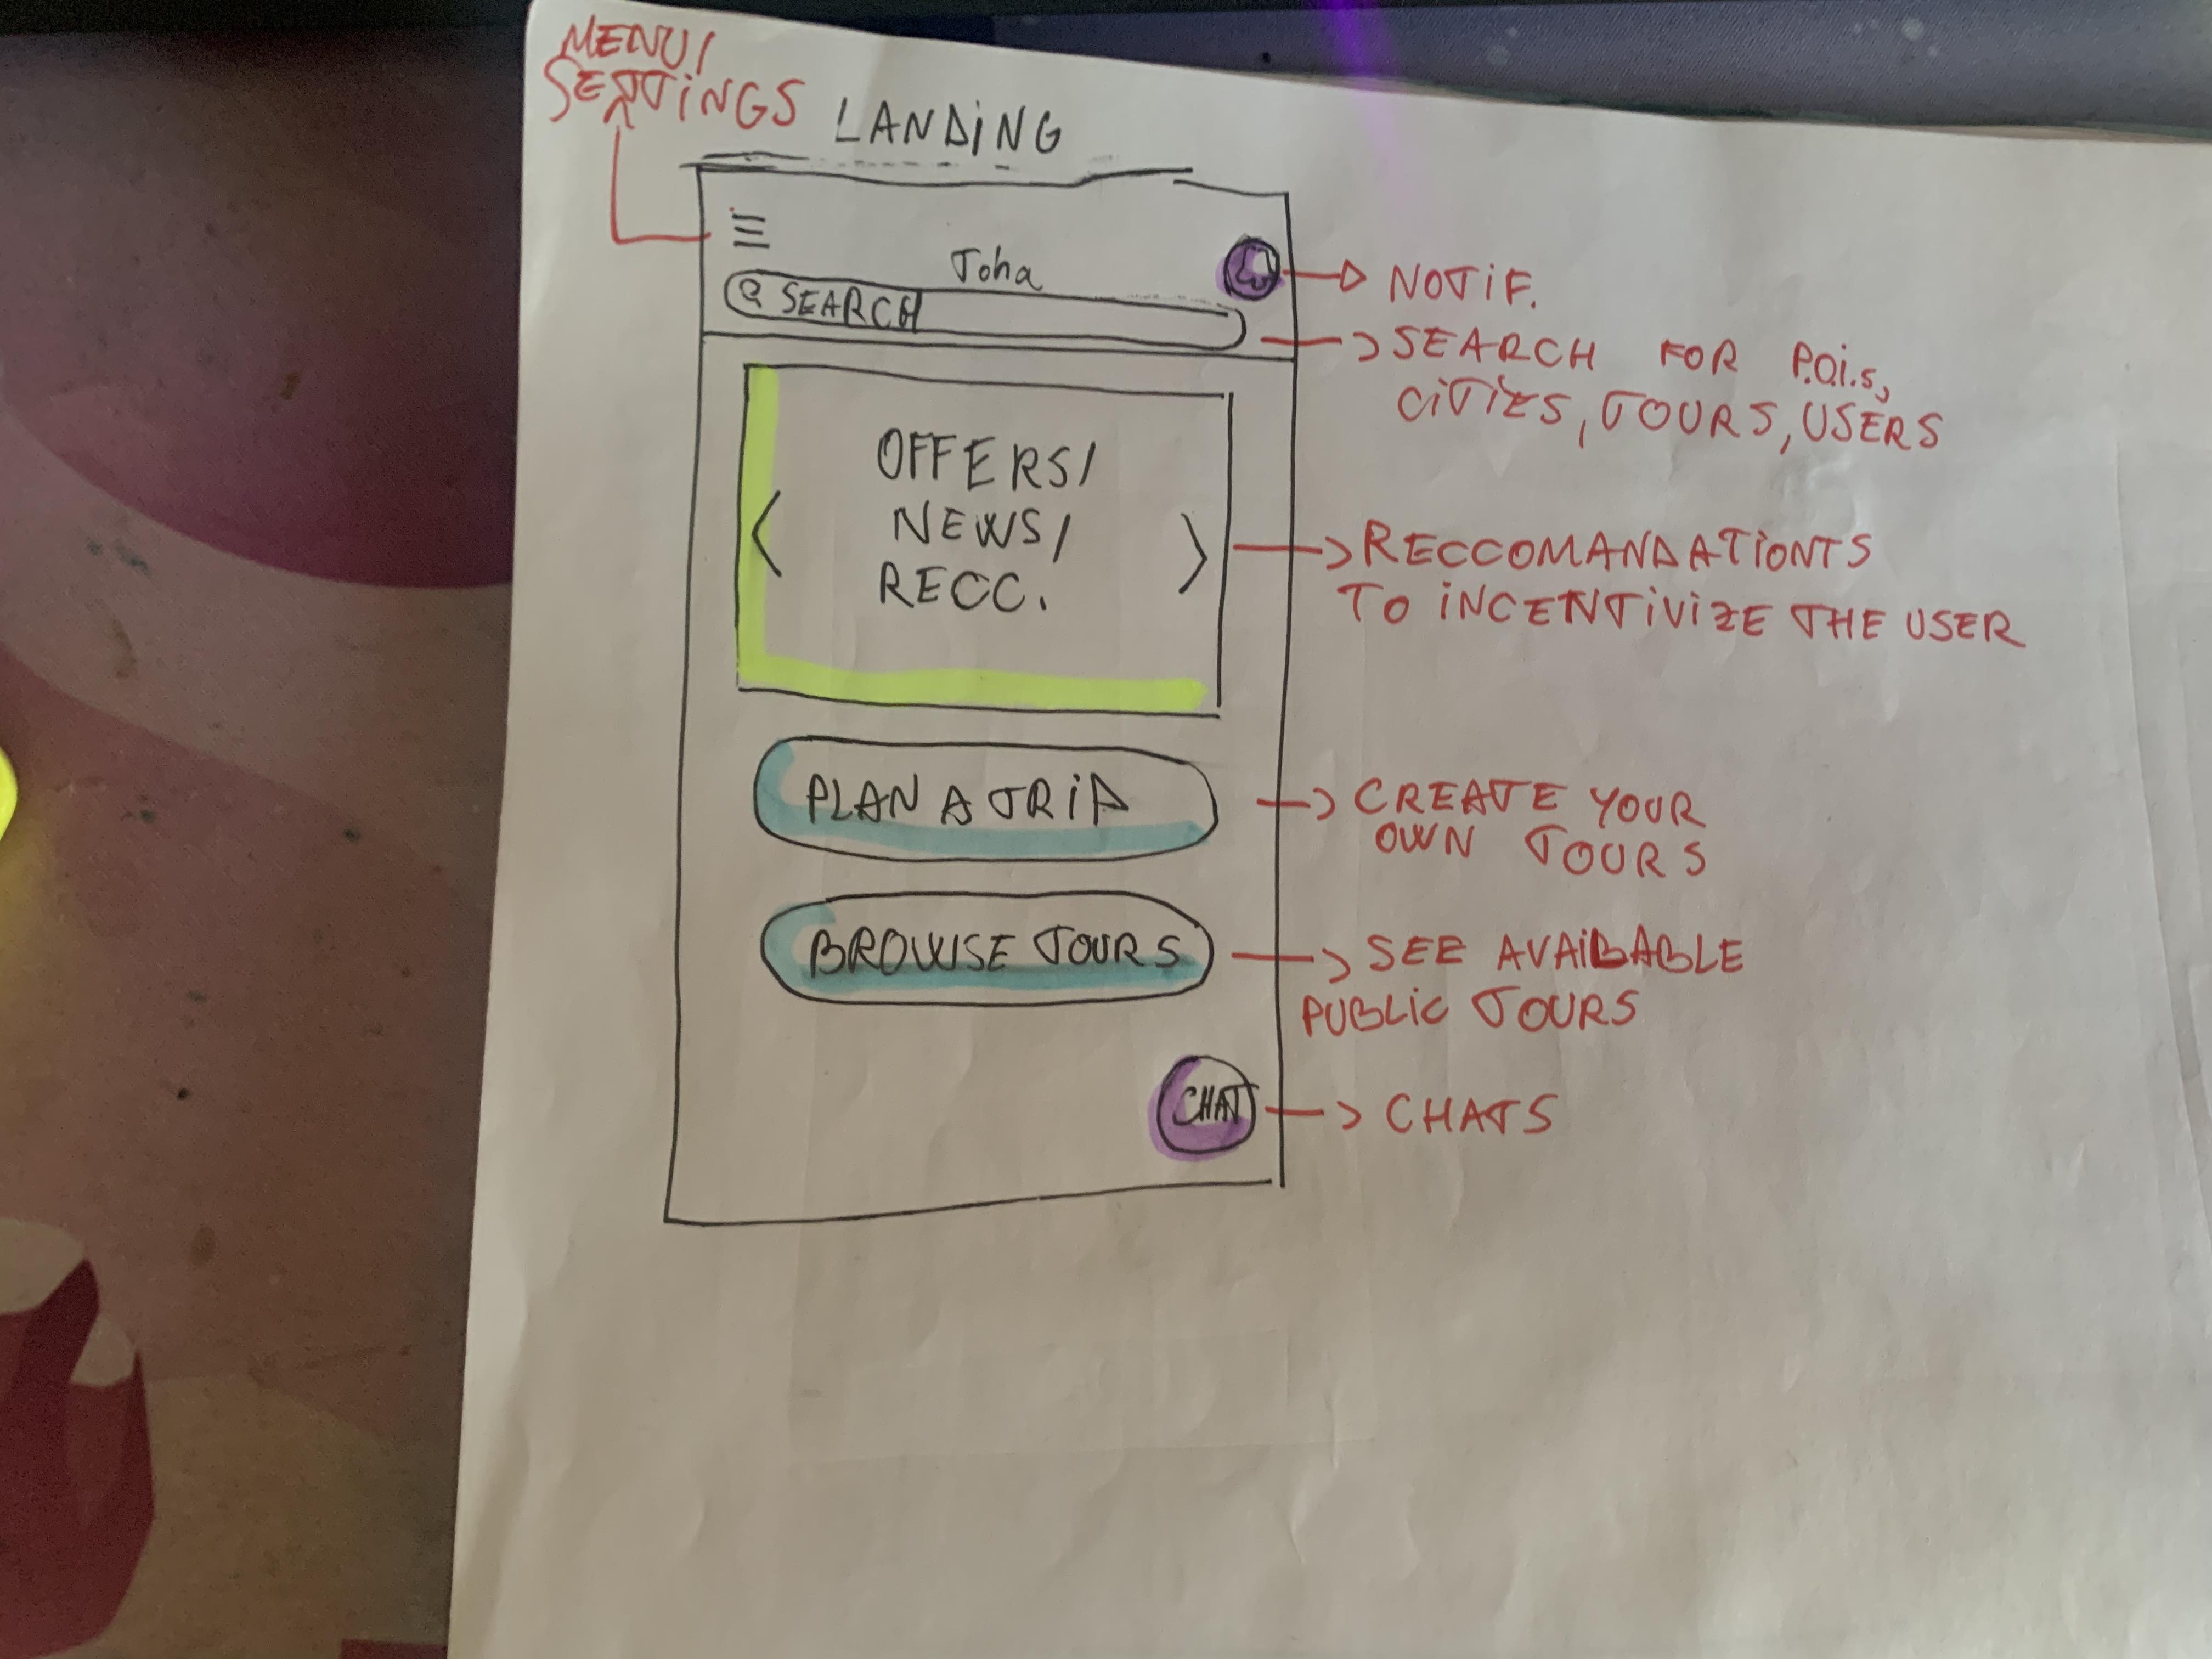 MENU/
SETTINGS
LANDING
Toha
SEARCH
NOTIF.
SEARCH FOR P.O.i.s,
CITIES, TOURS, USERS
OFFERS/
NEWS/
RECC.
RECCOMANDATIONTS
TO INCENTIVIZE THE USER
PLAN A TRIP
CREATE YOUR
OWN TOURS
BROWSE TOURS
SEE AVAILABABLE
PUBLIC TOURS
CHAT
CHATS